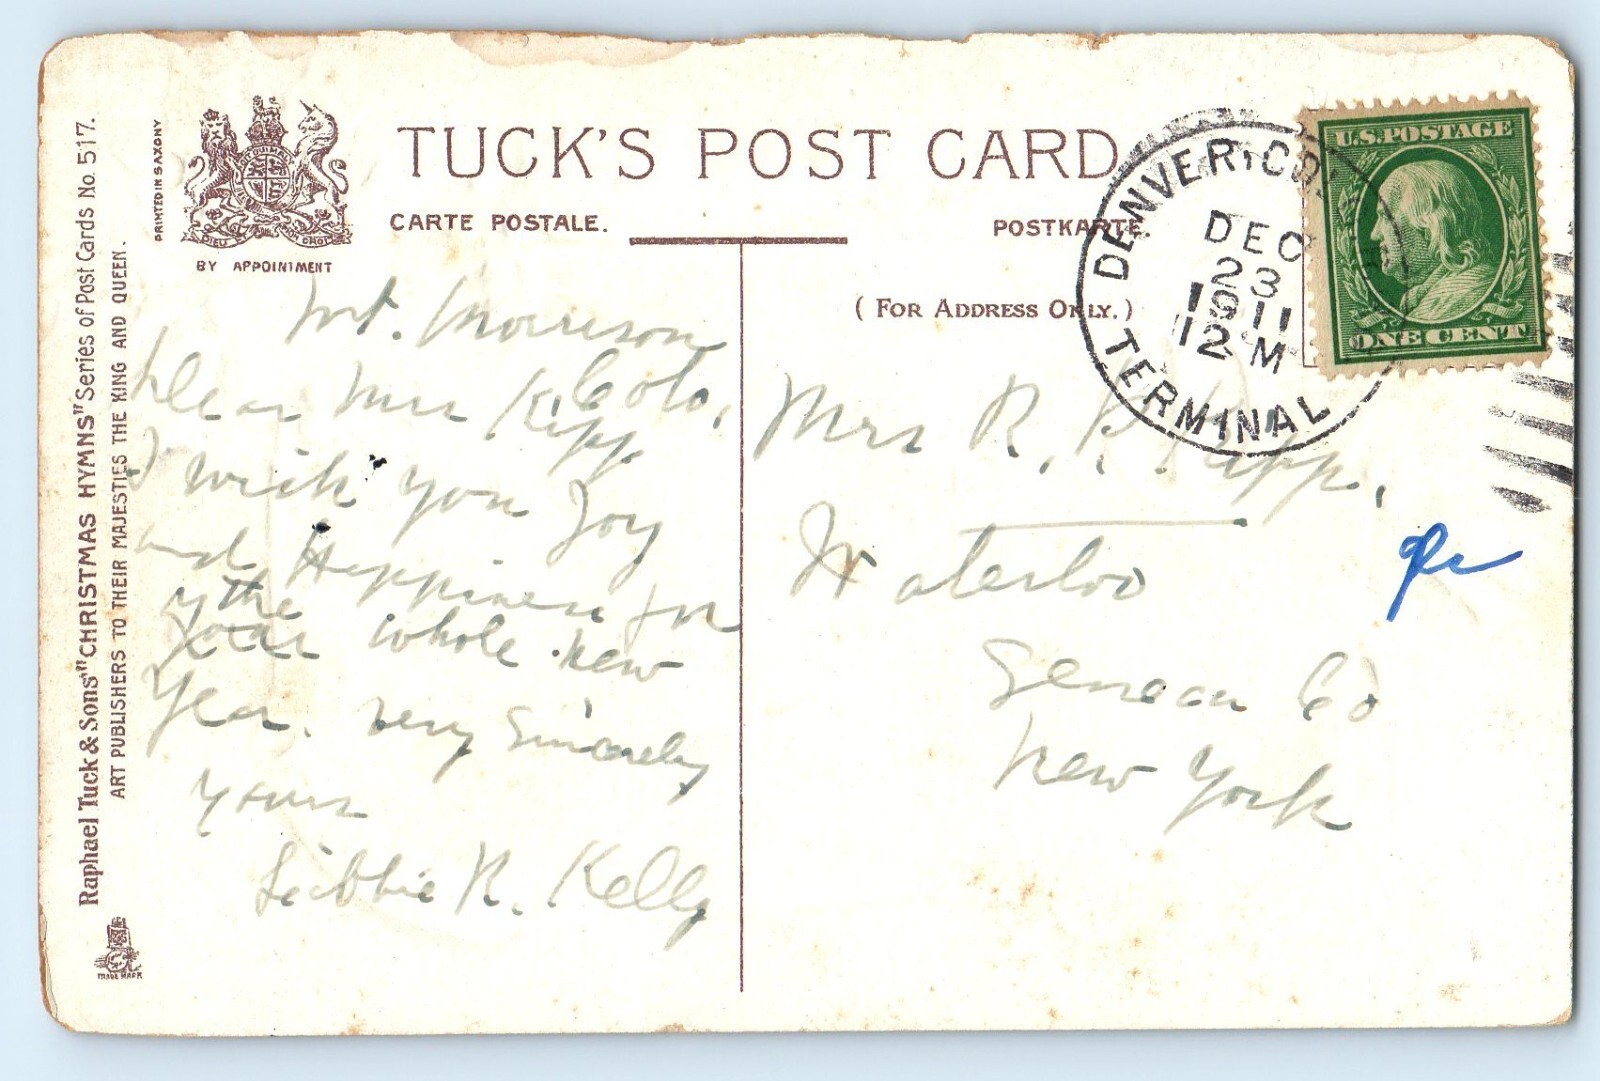 TUCK'S POST CARD
CARTE POSTALE.
POSTKARTE.
PRINTED IN SAXONY
BY APPOINTMENT
(FOR ADDRESS ONLY.)
Raphael Tuck & Sons' "CHRISTMAS HYMNS" Series of Post Cards No. 517.
ART PUBLISHERS TO THEIR MAJESTIES THE KING AND QUEEN.
TRADE MARK
DENVER, COLO.
DEC
23
1911
12 M
TERMINAL
U.S. POSTAGE
ONE CENT
Mt. Morrison
Colo.
Dear Mrs Kipp.
I wish you Joy
and Happiness for
the
year whole new
Year. Very Sincerely
yours
Libbie R. Kelly
Mrs R. R. Kipp,
Waterloo
Seneca Co
New York